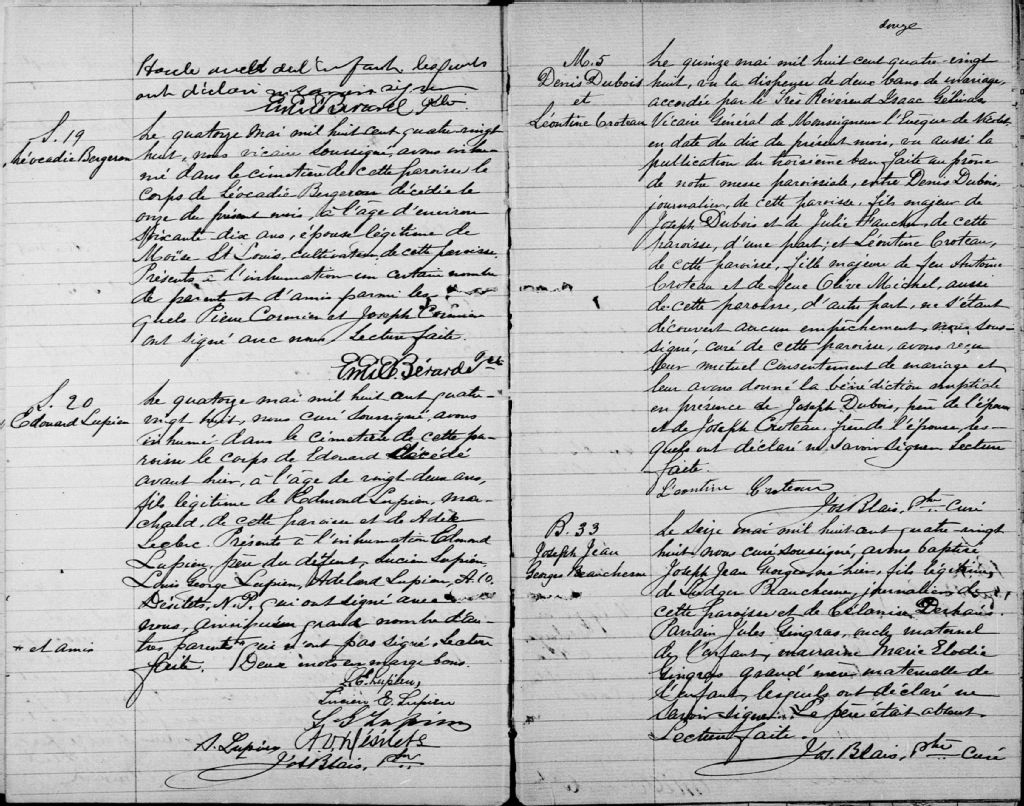 oncle et de l'enfant lesquels
ont déclaré ne savoir signer
Emile Bérard Ptre
S. 19
Léocadie Bergeron
Le quatorze mai mil huit cent quatre-vingt
huit, nous vicaire soussigné, avons inhu-
mé dans le cimetière de cette paroisse le
corps de Léocadie Bergeron décédée le
onze du présent mois, à l'âge d'environ
soixante dix ans, épouse légitime de
Moïse St Louis, cultivateur, de cette paroisse.
Présents à l'inhumation un certain nombre
de parents et d'amis parmi les-
quels Pierre Cormier et Joseph Cormier
ont signé avec nous. Lecture faite.
Emile Bérard Ptre
S. 20
Edouard Lupien
Le quatorze mai mil huit cent quatre-
vingt huit, nous curé soussigné, avons
inhumé dans le cimetière de cette pa-
roisse le corps de Edouard décédé
avant hier, à l'âge de vingt-deux ans,
fils légitime de Edmond Lupien, mar-
chand, de cette paroisse et de Adèle
Leclerc. Présents à l'inhumation Edmond
Lupien, père du défunt, Lucien Lupien,
Louis George Lupien, Adelard Lupien, A.O.
Désilets, N.P. qui ont signé avec
nous, ainsi qu'un grand nombre d'au-
tres parents * qui n'ont pas signé. Lecture
* et amis
faite. Deux mots en marge bons.
L. E. Lupien,
Lucien E. Lupien
L G Lupien
A. Lupien A.O. Désilets
Jos Blais, Ptre
douze
M. 5
Denis Dubois
et
Léontine Croteau
Le quinze mai mil huit cent quatre-vingt
huit, vu la dispense de deux bans de mariage,
accordée par le Très Révérend Isaac Gélinas,
Vicaire Général de Monseigneur l'Evêque de Nicolet,
en date du dix du présent mois, vu aussi la
publication du troisième ban faite au prône
de notre messe paroissiale, entre Denis Dubois,
journalier, de cette paroisse, fils majeur de
Joseph Dubois et de Julie Faucher, de cette
paroisse, d'une part; et Léontine Croteau,
de cette paroisse, fille majeure de feu Antoine
Croteau et de feue Olive Michel, aussi
de cette paroisse, d'autre part, ne s'étant
découvert aucun empêchement, nous sous-
signé, curé de cette paroisse, avons reçu
leur mutuel consentement de mariage et
leur avons donné la bénédiction nuptiale
en présence de Joseph Dubois, père de l'époux
et de Joseph Croteau, frère de l'épouse, les-
quels ont déclaré ne savoir signer. Lecture
faite.
Léontine Croteau
Jos Blais, Ptre Curé
B. 33
Joseph Jean
Georges Beauchesne
Le seize mai mil huit cent quatre-vingt
huit nous curé soussigné, avons baptisé
Joseph Jean Georges, né hier, fils légitime
de Ludger Beauchesne, journalier, de
cette paroisse et de Mélanie Deshaies.
Parrain Jules Gingras, oncle maternel
de l'enfant, marraine Marie Elodie
Gingras grand'mère maternelle de
l'enfant, lesquels ont déclaré ne
savoir signer. Le père était absent.
Lecture faite.
Jos. Blais, Ptre Curé